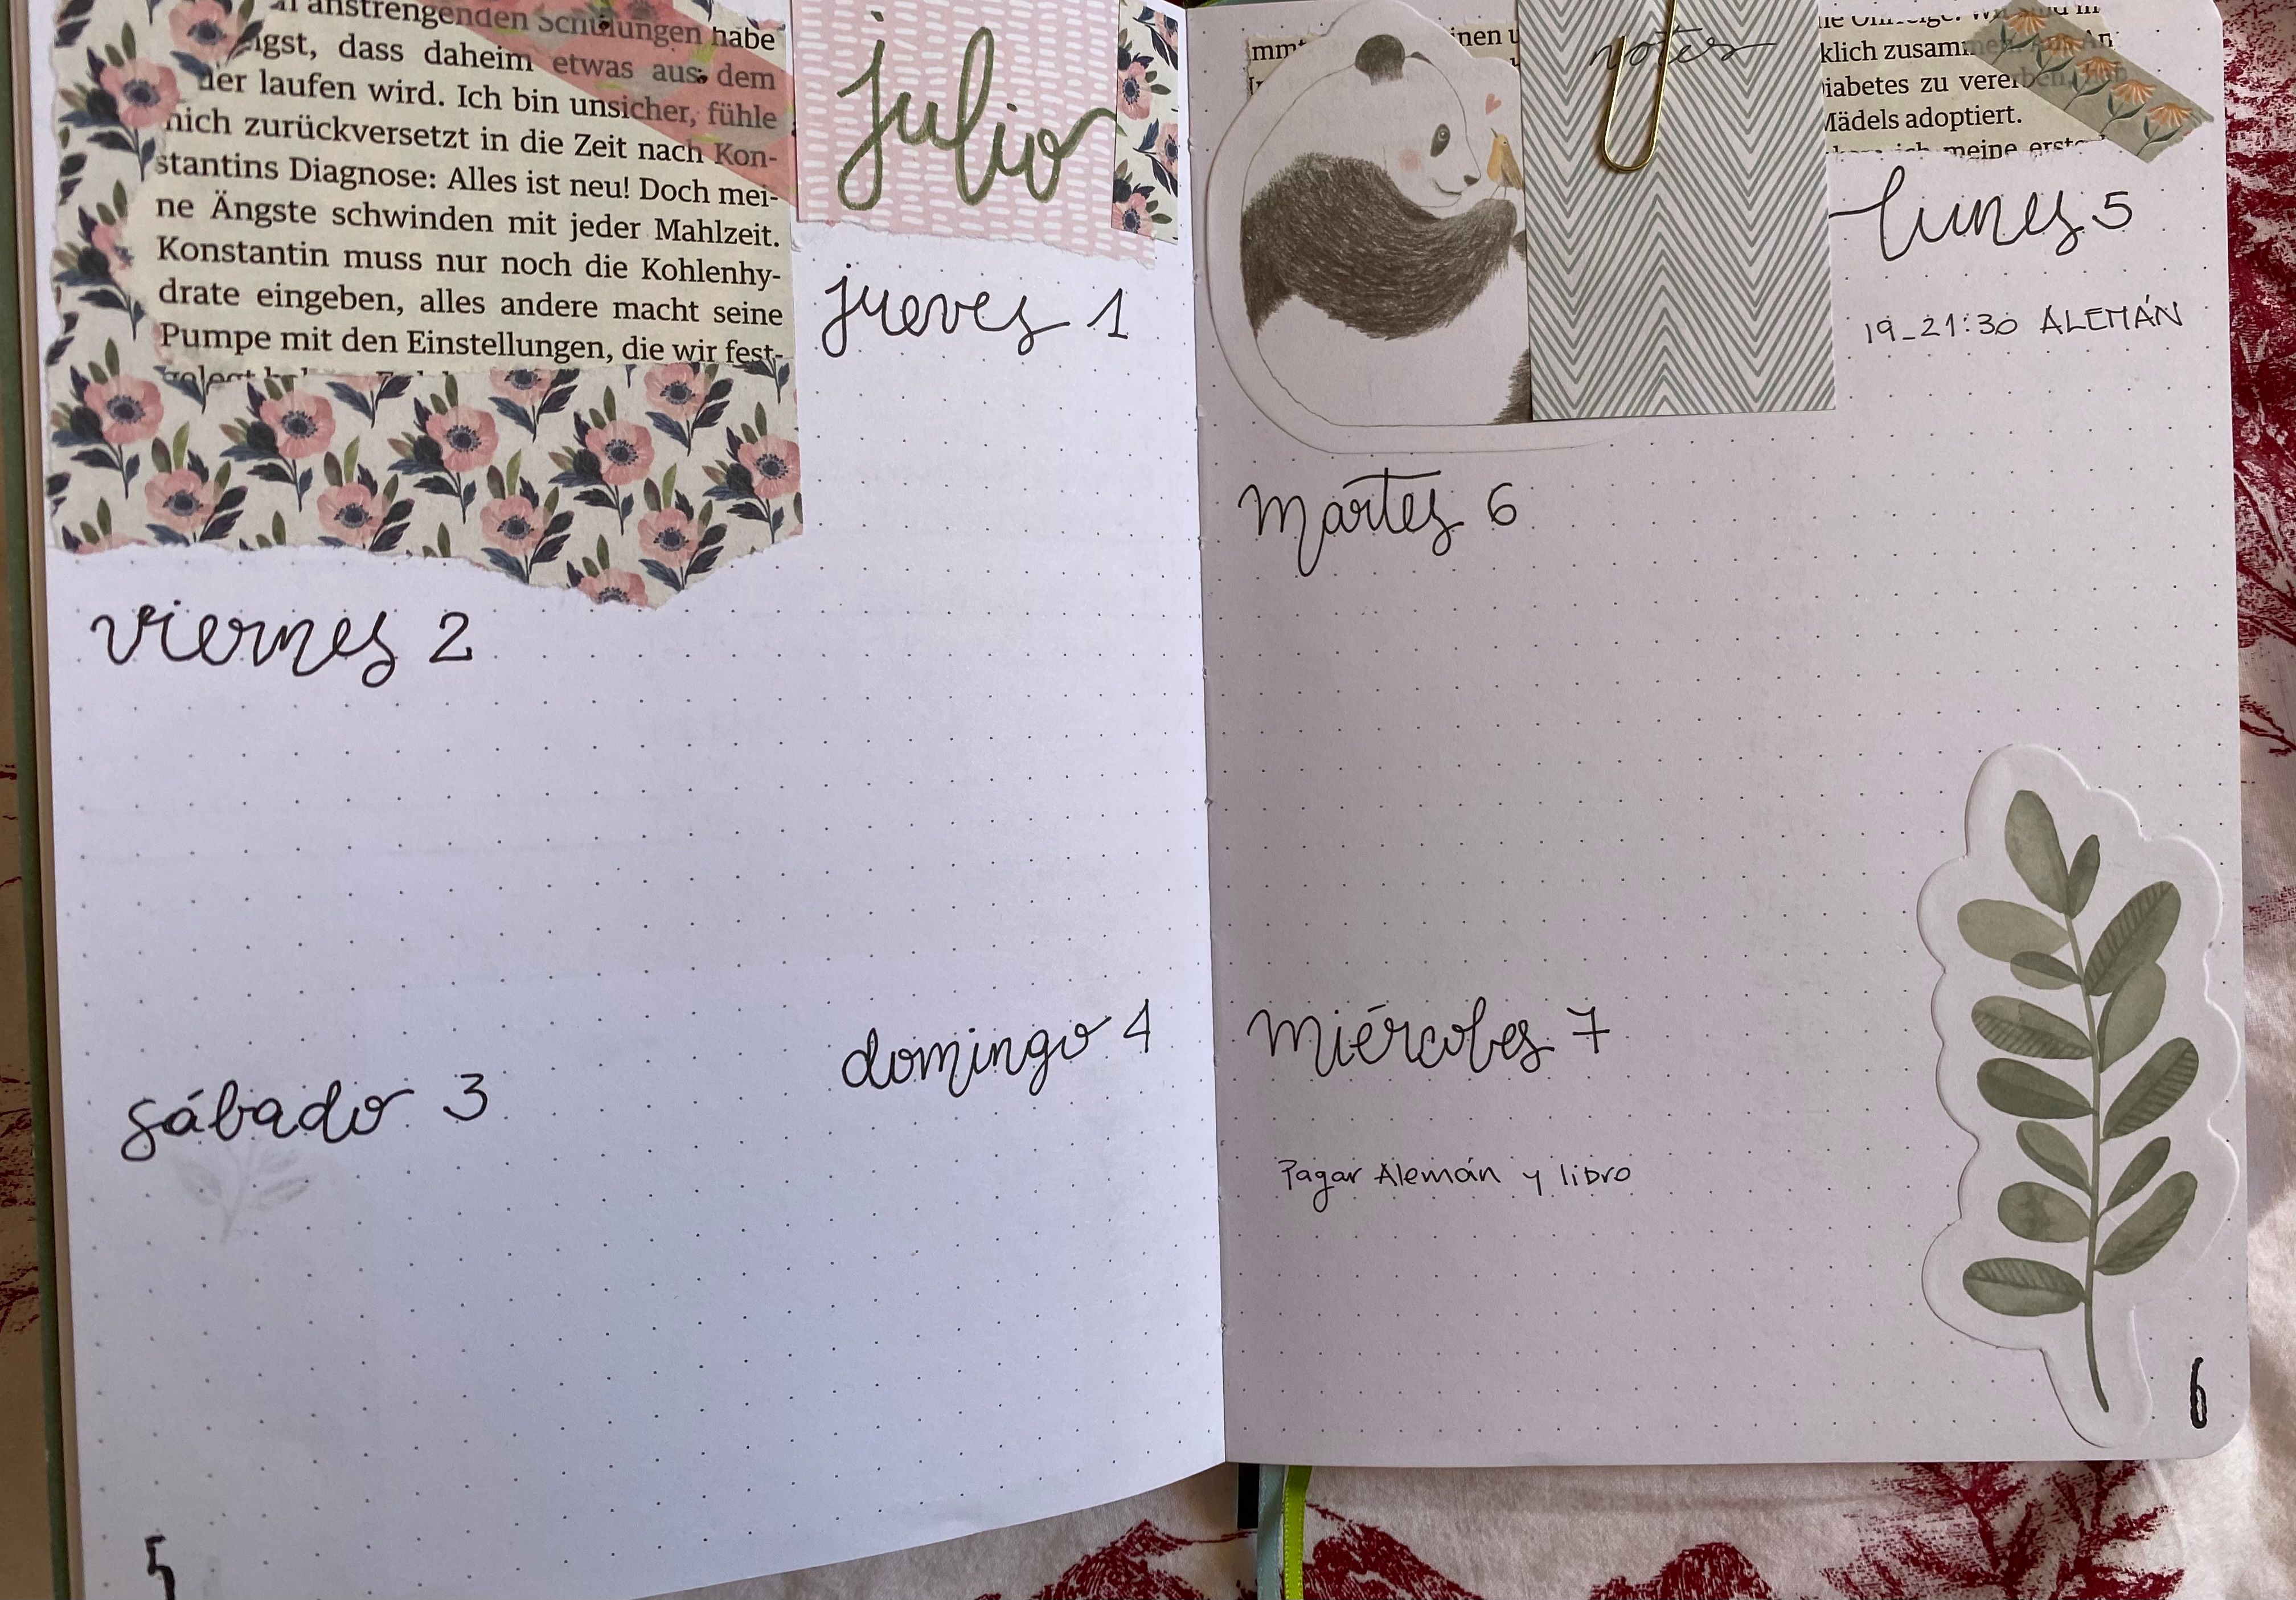 anstrengenden Schulungen habe
dass daheim etwas aus dem
laufen wird. Ich bin unsicher, fühle
mich zurückversetzt in die Zeit nach Kon-
stantins Diagnose: Alles ist neu! Doch mei-
ne Ängste schwinden mit jeder Mahlzeit.
Konstantin muss nur noch die Kohlenhy-
drate eingeben, alles andere macht seine
Pumpe mit den Einstellungen, die wir fest-
julio
jueves 1
viernes 2
sábado 3
domingo 4
5
notes
klich zusammen
iabetes zu vererben
Mädels adoptiert.
ich meine erste
lunes 5
19_21:30 ALEMÁN
martes 6
miércoles 7
Pagar Alemán y libro
6